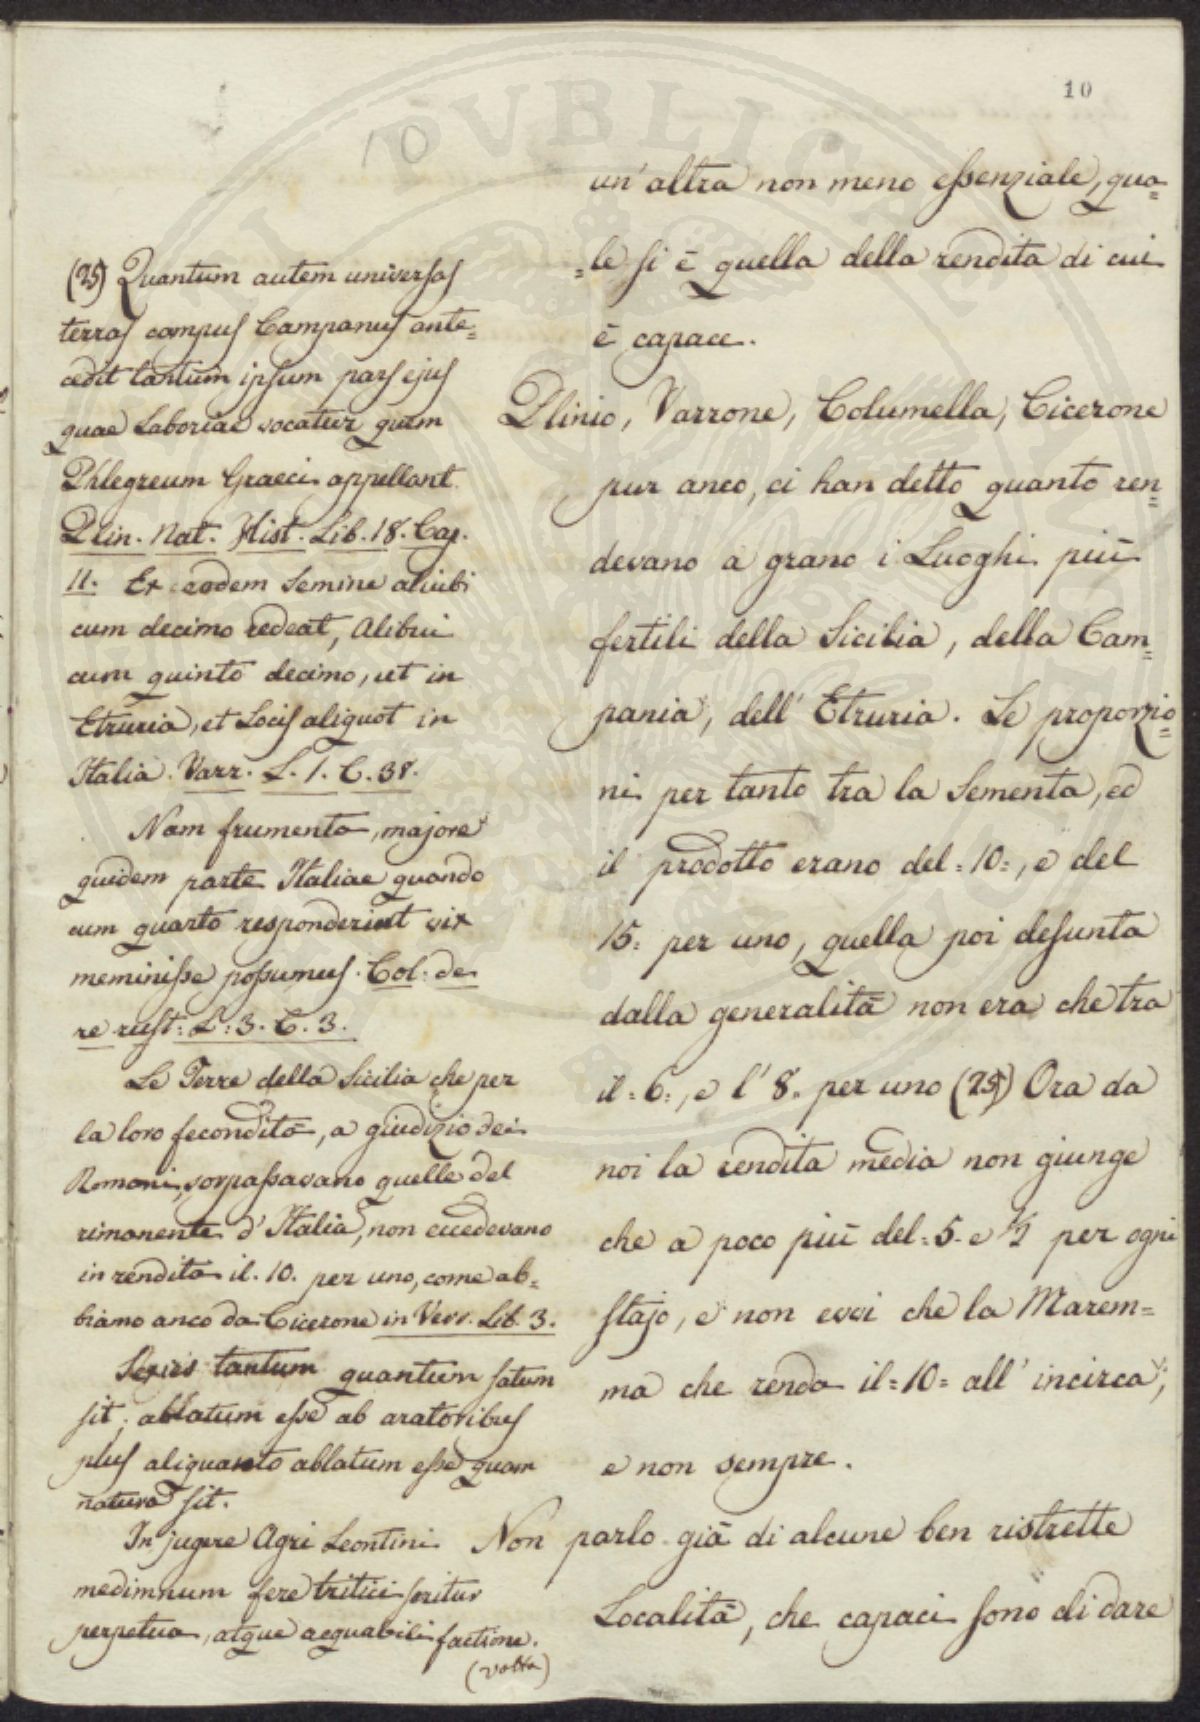 10
un' altra non meno essenziale, qua=
=le si è quella della rendita di cui
è capace.
Plinio, Varrone, Columella, Cicerone
pur anco, ci han detto quanto ren=
devano a grano i Luoghi più
fertili della Sicilia, della Cam=
pania, dell' Etruria. Le proporzio=
ni per tanto tra la Sementa, ed
il prodotto erano del =10=, e del
15= per uno, quella poi desunta
dalla generalità non era che tra
il =6=, e l' 8= per uno (25) Ora da
noi la rendita media non giunge
che a poco più del =5= e ½ per ogni
stajo, e non evvi che la Marem=
ma che renda il =10= all' incirca;
e non sempre.
Non parlo già di alcune ben ristrette
Località, che capaci sono di dare
(25) Quantum autem universas
terras campus Campanus ante=
cedit tantum ipsum pars ejus
quae Laboriae vocatur quem
Phlegreum Graeci appellant.
Plin. Nat. Hist. Lib. 18. Cap.
11. Ex eodem Semine aliubi
cum decimo redeat, Alibui
cum quinto decimo, ut in
Etruria, et Locis aliquot in
Italia. Varr. L. 1. C. 38.
Nam frumenta, majore
quidem parte Italiae quando
cum quarto responderint vix
meminisse possumus. Col: de
re rust: L: 3. C. 3.
Le Terre della Sicilia che per
la loro fecondità, a giudizio dei
Romani, sorpassavano quelle del
rimanente d' Italia, non eccedevano
in rendita il. 10. per uno, come ab=
biamo anco da Cicerone in Verr. Lib. 3.
tantum quantum satum
sit; ablatum esse ab aratoribus
plus aliquanto ablatum esse quam
natura sit.
In jugere Agri Leontini
medimnum fere tritici seritur
perpetua, atque aequabili sactione.
(volta)
PUBLICAE